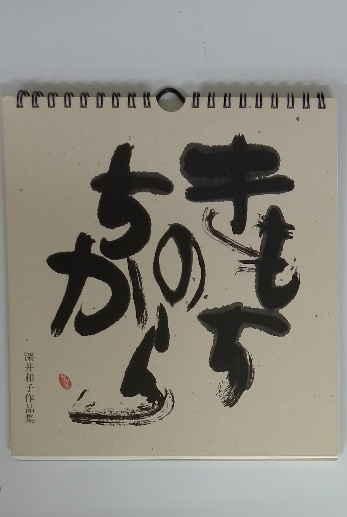 きもち
の
ちから
深井和子作品集